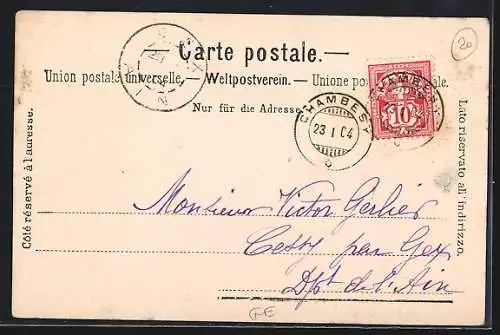 20
Carte postale.—
Union postale universelle. — Weltpostverein. — Unione postale universale.
Nur für die Adresse.
CHAMBESY
23 I 04
CHAMBESY
10
Côté réservé à l'adresse.
Lato riservato all' indirizzo.
Monsieur Victor Gerlier
Cessy par Gex
Dpt de l'Ain
GE